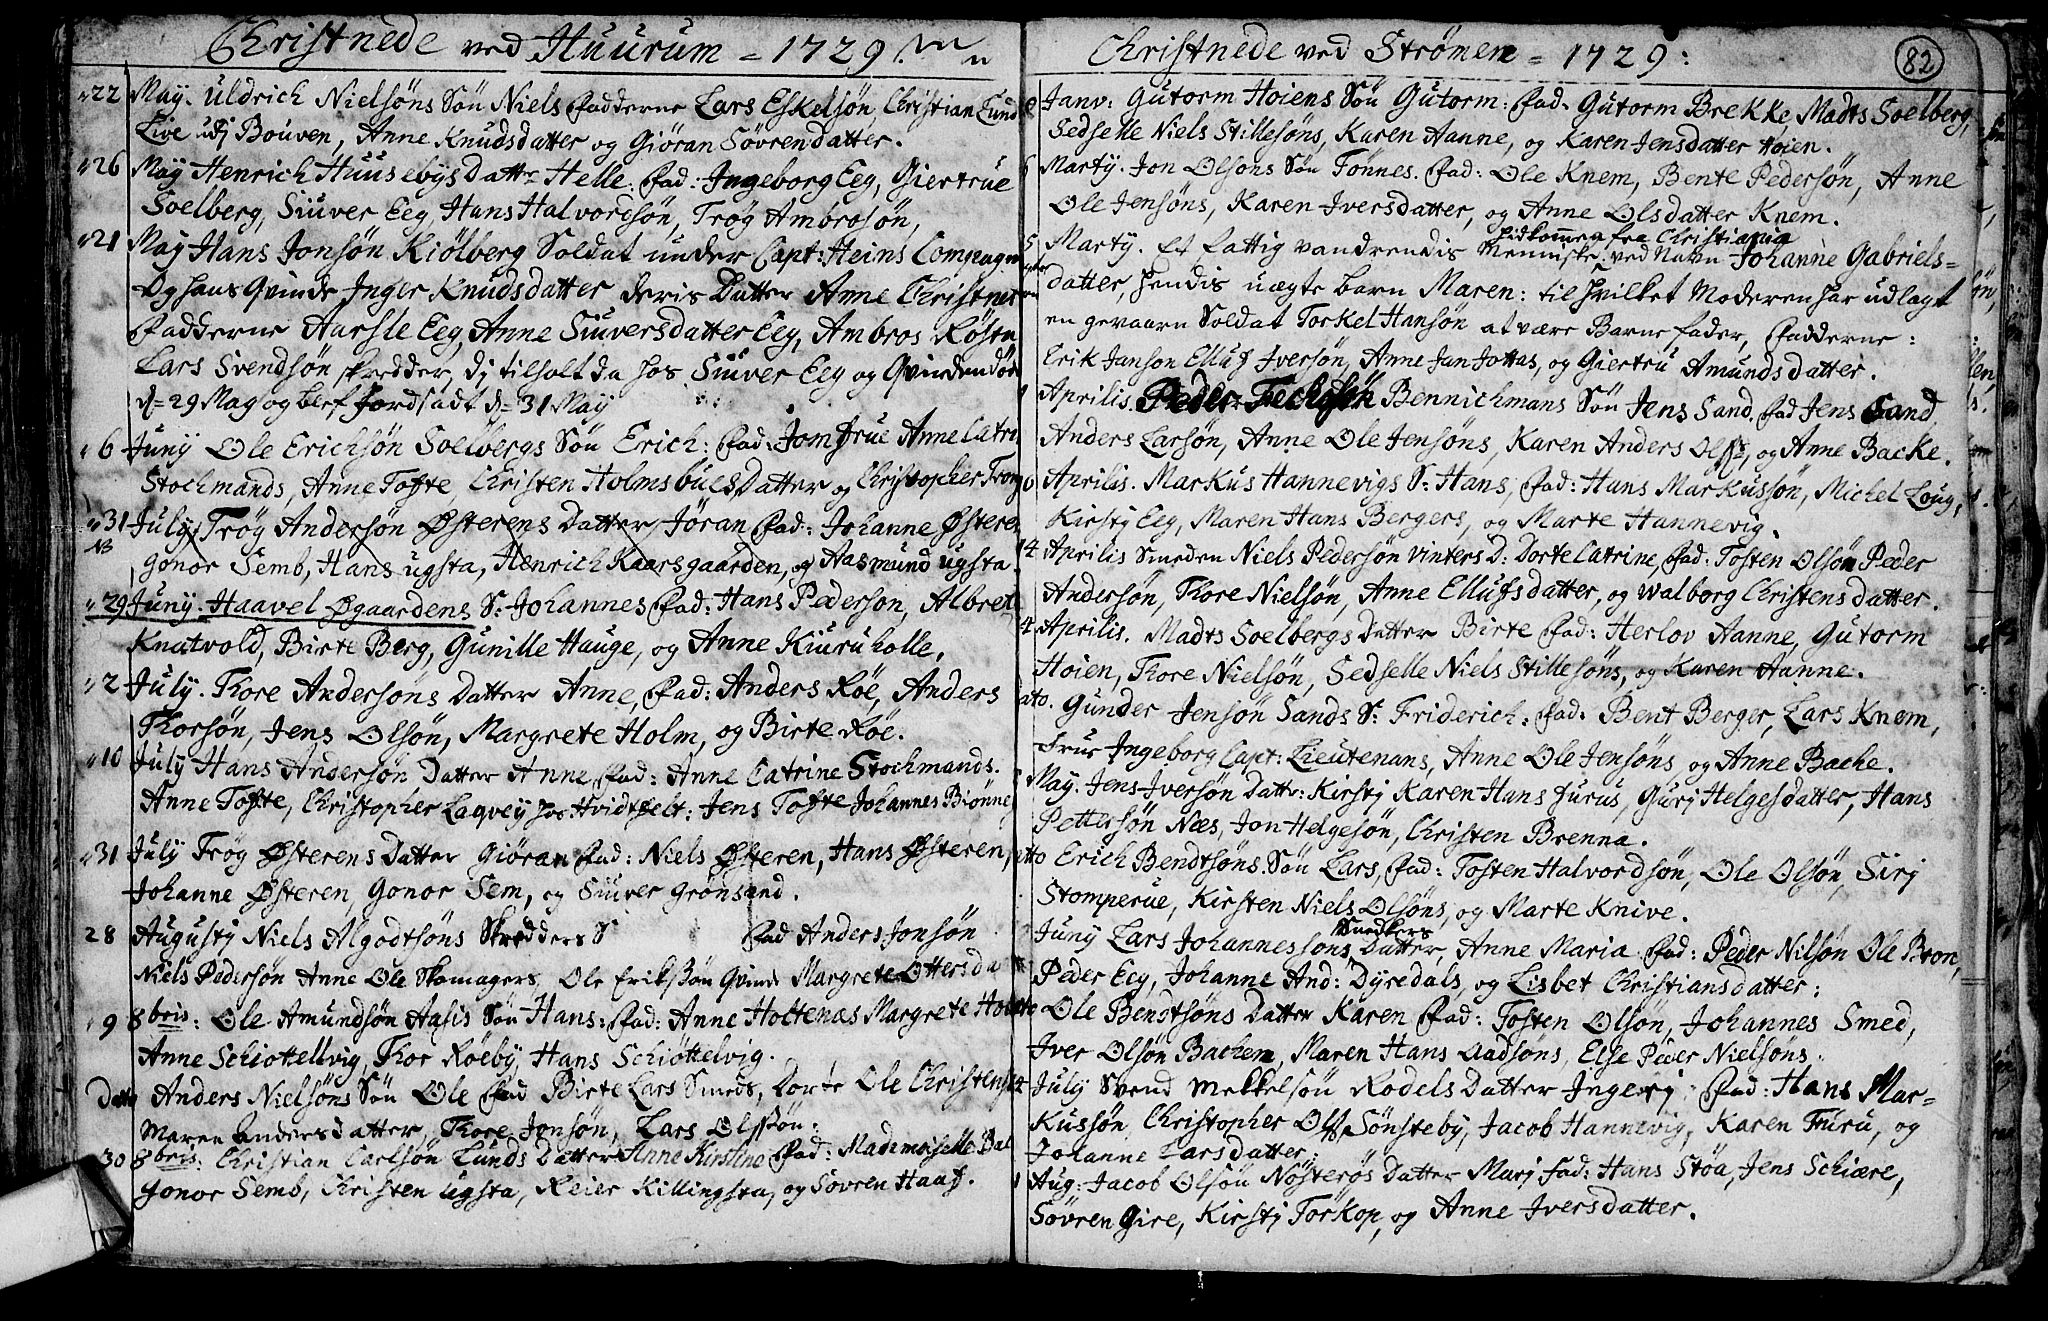 Christnede ved Huurum = 1729.
22 May. Uldrich Nielsöns Sön Niels Fadderne Lars Eskelsön, Christian Lund
Live udj Bouven, Anne Knudsdatter og Giöran Sövrendatter.
26 May Henrich Huusebys Dattr Helle. Fad: Ingeborg Eeg, Giertrue
Soelberg, Siuver Eeg, Hans Halvordsön, Trög Ambrosön,
21 May Hans Jonsön Kiölberg Soldat under Capt: Heins Compagn
Og hans Qvinde Inger Knudsdatter deris Datter Anne Christnet
Fadderne Aarsle Eeg, Anne Siuversdatter Eeg, Ambros Rösen
Lars Svendsön skredder, Dj tilholt da hos Siuver Eeg og Qvinden döe
d= 29 May og blef Jordsadt d= 31 May
6 Juny Ole Erichsön Soelbergs Sön Erich: Fad: Jomfrue Anne Catri
Stochmands, Anne Tofte, Christen Holmsbues Datter og Christopher Trom
31 July Trög Andersön Østerens Datter Jöran Fad: Johanne Østeren
NB Gonor Semb, Hans ugsta, Henrich Kaarsgaarden, og Aasmund ugsta
29 Juny. Haavel Øgaardens S: Johannes Fad: Hans Pederson, Albret
Knatvold, Birte Berg, Gunille Hauge, og Anne Kiuruholle.
2 July. Thore Andersöns Datter Anne, Fad: Anders Röe, Anders
Thorsön, Jens Olsön, Margrete Holm, og Birte Röe.
10 July Hans Andersön Datter Anne, Fad: Anne Catrine Stochmands.
Anne Tofte, Christopher Laqvey hos Hvidtfelt: Jens Tofte Johannes Biönne
31 July Trög Østerens Datter Giöran Fad: Niels Østeren, Hans Østeren,
Johanne Østeren, Gonor Sem, og Siuver Grönsand.
28 Augustj Niels Algodtsöns Skredders S Fad Anders Jonsön
Niels Pedersön Anne Ole Skomagers, Ole Eriksön Qvinde Margrete Ottersda
9 8bris: Ole Amundsön Aasis Sön Hans: Fad: Anne Holtenæs Margrete Ho
Anne Schiottellvig, Thor Röeby, Hans Schiöttelvig.
Datto Anders Nielsöns Sön Ole Fad Birte Lars Smeds, Dorte Ole Christens
Maren Andersdatter, Thore Jonsön, Lars Olssön:
30 8bris: Christian Carlsön Lunds Datter Anne Kirstine Fad: Mademoiselle Bal
Gonor Semb, Christen Ugsta, Reier Killingsta, og Sövren Haaf.
Christnede ved Strömem = 1729:
82
Janv: Gutorm Hoiens Sön Gutorm: Fad. Gutorm Brekke, Madts Soelberg,
Sedselle Niels Stillesöns, Karen Aanne, og Karen Jensdatter Hoien.
6 Martÿ. Jon Olsons Sön Tönnes. Fad: Ole Knem, Bente Pedersön, Anne
Ole Jensöns, Karen Iversdatter, og Anne Olsdatter Knem.
hidkommen fra Christiania
5 Martÿ. Et fattig vandrendis Menniske, ved Navn Johanne Gabriels=
datter, hendis uægte barn Maren: til hvilket Moderen har udlagt
en gevaarn Soldat Torkel Hansön at være Barnefader, Fadderne:
Erik Janson Elluf Iversön, Anne Jan Jottas, og Giertru Amundsdatter.
Aprilis. Peder Bennichmans Sön Jens Sand. Fad Jens Sand
Anders Larsön, Anne Ole Jensöns, Karen Anders Olss:, og Anne Backe.
0 Aprilis. Markus Hannevigs S: Hans, Fad: Hans Markussön, Michel Loug,
Kirstj Eeg, Maren Hans Bergers, og Marte Hannevig.
14 Aprilis Smeden Niels Pedersön Vinters D: Dorte Catrine, Fad: Tosten Olsön Peder
Andersön, Thore Nielsön, Anne Ellufsdatter, og Walborg Christensdatter.
4 Aprilis. Madts Soelbergs Datter Birte Fad: Herlov Aanne, Gutorm
Hoien, Thore Nielsön, Sedselle Niels Stillesöns, og Karen Aanne.
ato. Gunder Jensön Sands S: Friderich: Fad: Bent Berger, Lars Knem,
Frue Ingeborg Capt: Lieutenans, Anne Ole Jensöns, og Anne Bache.
May. Jens Iversön Datter: Kirstj Karen Hans Furus, Gurj Helgesdatter, Hans
Pettersön Næs, Jon Helgesön, Christen Brenna.
tto Erich Bendtsöns Sön Lars, Fad: Tosten Halvordsön, Ole Olsön, Sirj
Stomperue, Kirsten Niels Olsöns, og Marte Knive.
Snedkers
Juny Lars Johannessons Datter, Anne Maria Fad: Peder Nilsön Ole Bron,
Peder Eeg, Johanne And: Dyredals, og Lisbet Christiansdatter:
to Ole Benstsöns Datter Karen Fad: Tosten Olsön, Johannes Smed,
Iver Olsön Bachem, Maren Hans Aadsöns, Else Peder Nielsöns.
July Svend Mekkelsön Rodels Datter Ingerj Fad: Hans Mar=
kussön, Christopher Olss Sönsteby, Jacob Hannevig, Karen Furu, og
Johanne Larsdatter:
Aug: Jacob Olsön Nösterös Datter Marj Fad: Hans Stöa, Jens Schiære,
Sövren Gire, Kirstj Torkop, og Anne Iversdatter.